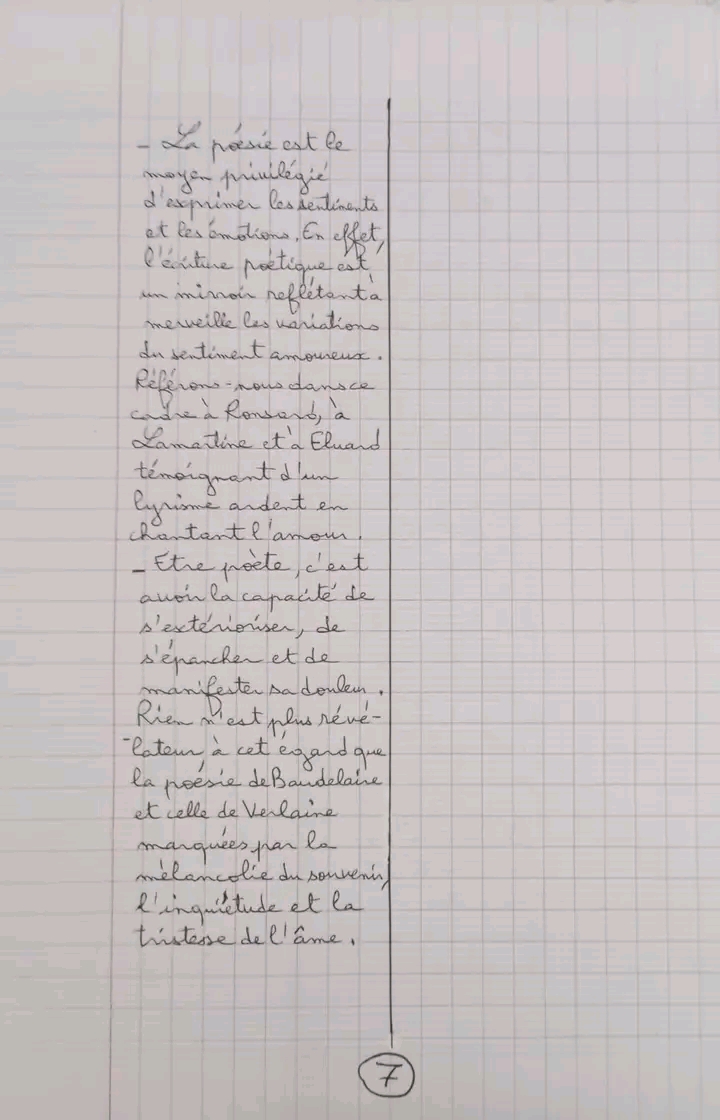 - La poésie est le
moyen privilégié
d'exprimer les sentiments
et les émotions. En effet,
l'écriture poétique est
un miroir reflétant à
merveille les variations
du sentiment amoureux.
Référons-nous dans ce
cadre à Ronsard, à
Lamartine et à Eluard
témoignant d'un
lyrisme ardent en
chantant l'amour.
- Etre poète, c'est
avoir la capacité de
s'extérioriser, de
s'épancher et de
manifester sa douleur.
Rien n'est plus révé-
-lateur à cet égard que
la poésie de Baudelaire
et celle de Verlaine
marquées par la
mélancolie du souvenir,
l'inquiétude et la
tristesse de l'âme.
7